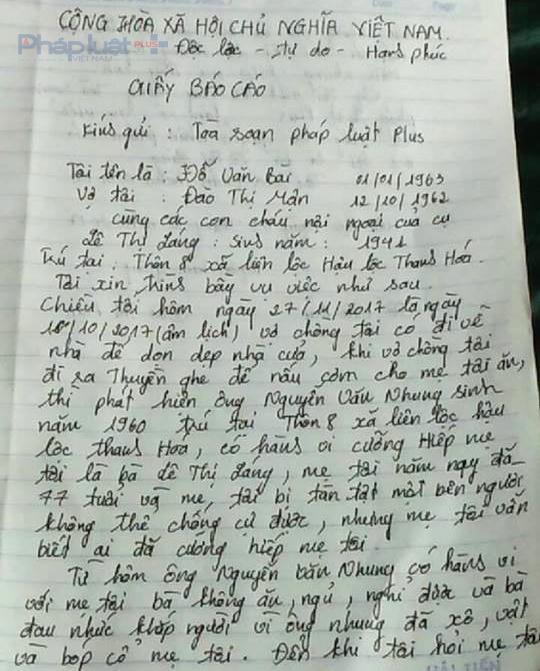 CỘNG HÒA XÃ HỘI CHỦ NGHĨA VIỆT NAM.
Pháp luật PLUS
VIỆT NAM
Độc lập - Tự do - Hạnh phúc
GIẤY BÁO CÁO
Kính gửi : Toà soạn pháp luật Plus
Tôi tên là : Đỗ Văn Bái 01/01/1963
Vợ tôi : Đào Thị Mận 12/10/1962
cùng các con cháu nội ngoại của cụ
Lê Thị Láng : Sinh năm : 1941
Trú tại : Thôn 8 xã liên lộc Hậu lộc Thanh Hoá.
Tôi xin trình bày vụ việc như sau.
Chiều tối hôm ngày 27/11/2017 là ngày
10/10/2017 (âm lịch) vợ chồng tôi có đi về
nhà để dọn dẹp nhà cửa, khi vợ chồng tôi
đi ra Thuyền ghe để nấu cơm cho mẹ tôi ăn,
thì phát hiện ông Nguyễn Văn Nhung sinh
năm 1960 trú tại Thôn 8 xã liên lộc hậu
lộc thanh Hoá, có hành vi cưỡng Hiếp mẹ
tôi là bà Lê Thị Lang, mẹ tôi năm nay đã
77 tuổi và mẹ tôi bị tàn tật một bên người
không thể chống cự được, nhưng mẹ tôi vẫn
biết ai đã cưỡng hiếp mẹ tôi.
Từ hôm ông Nguyễn văn Nhung có hành vi
với mẹ tôi bà không ăn, ngủ, nghỉ được và bà
đau nhức khắp người vì ông nhung đã xô, vật
và bóp cổ mẹ tôi. Đến khi tôi hỏi mẹ tôi